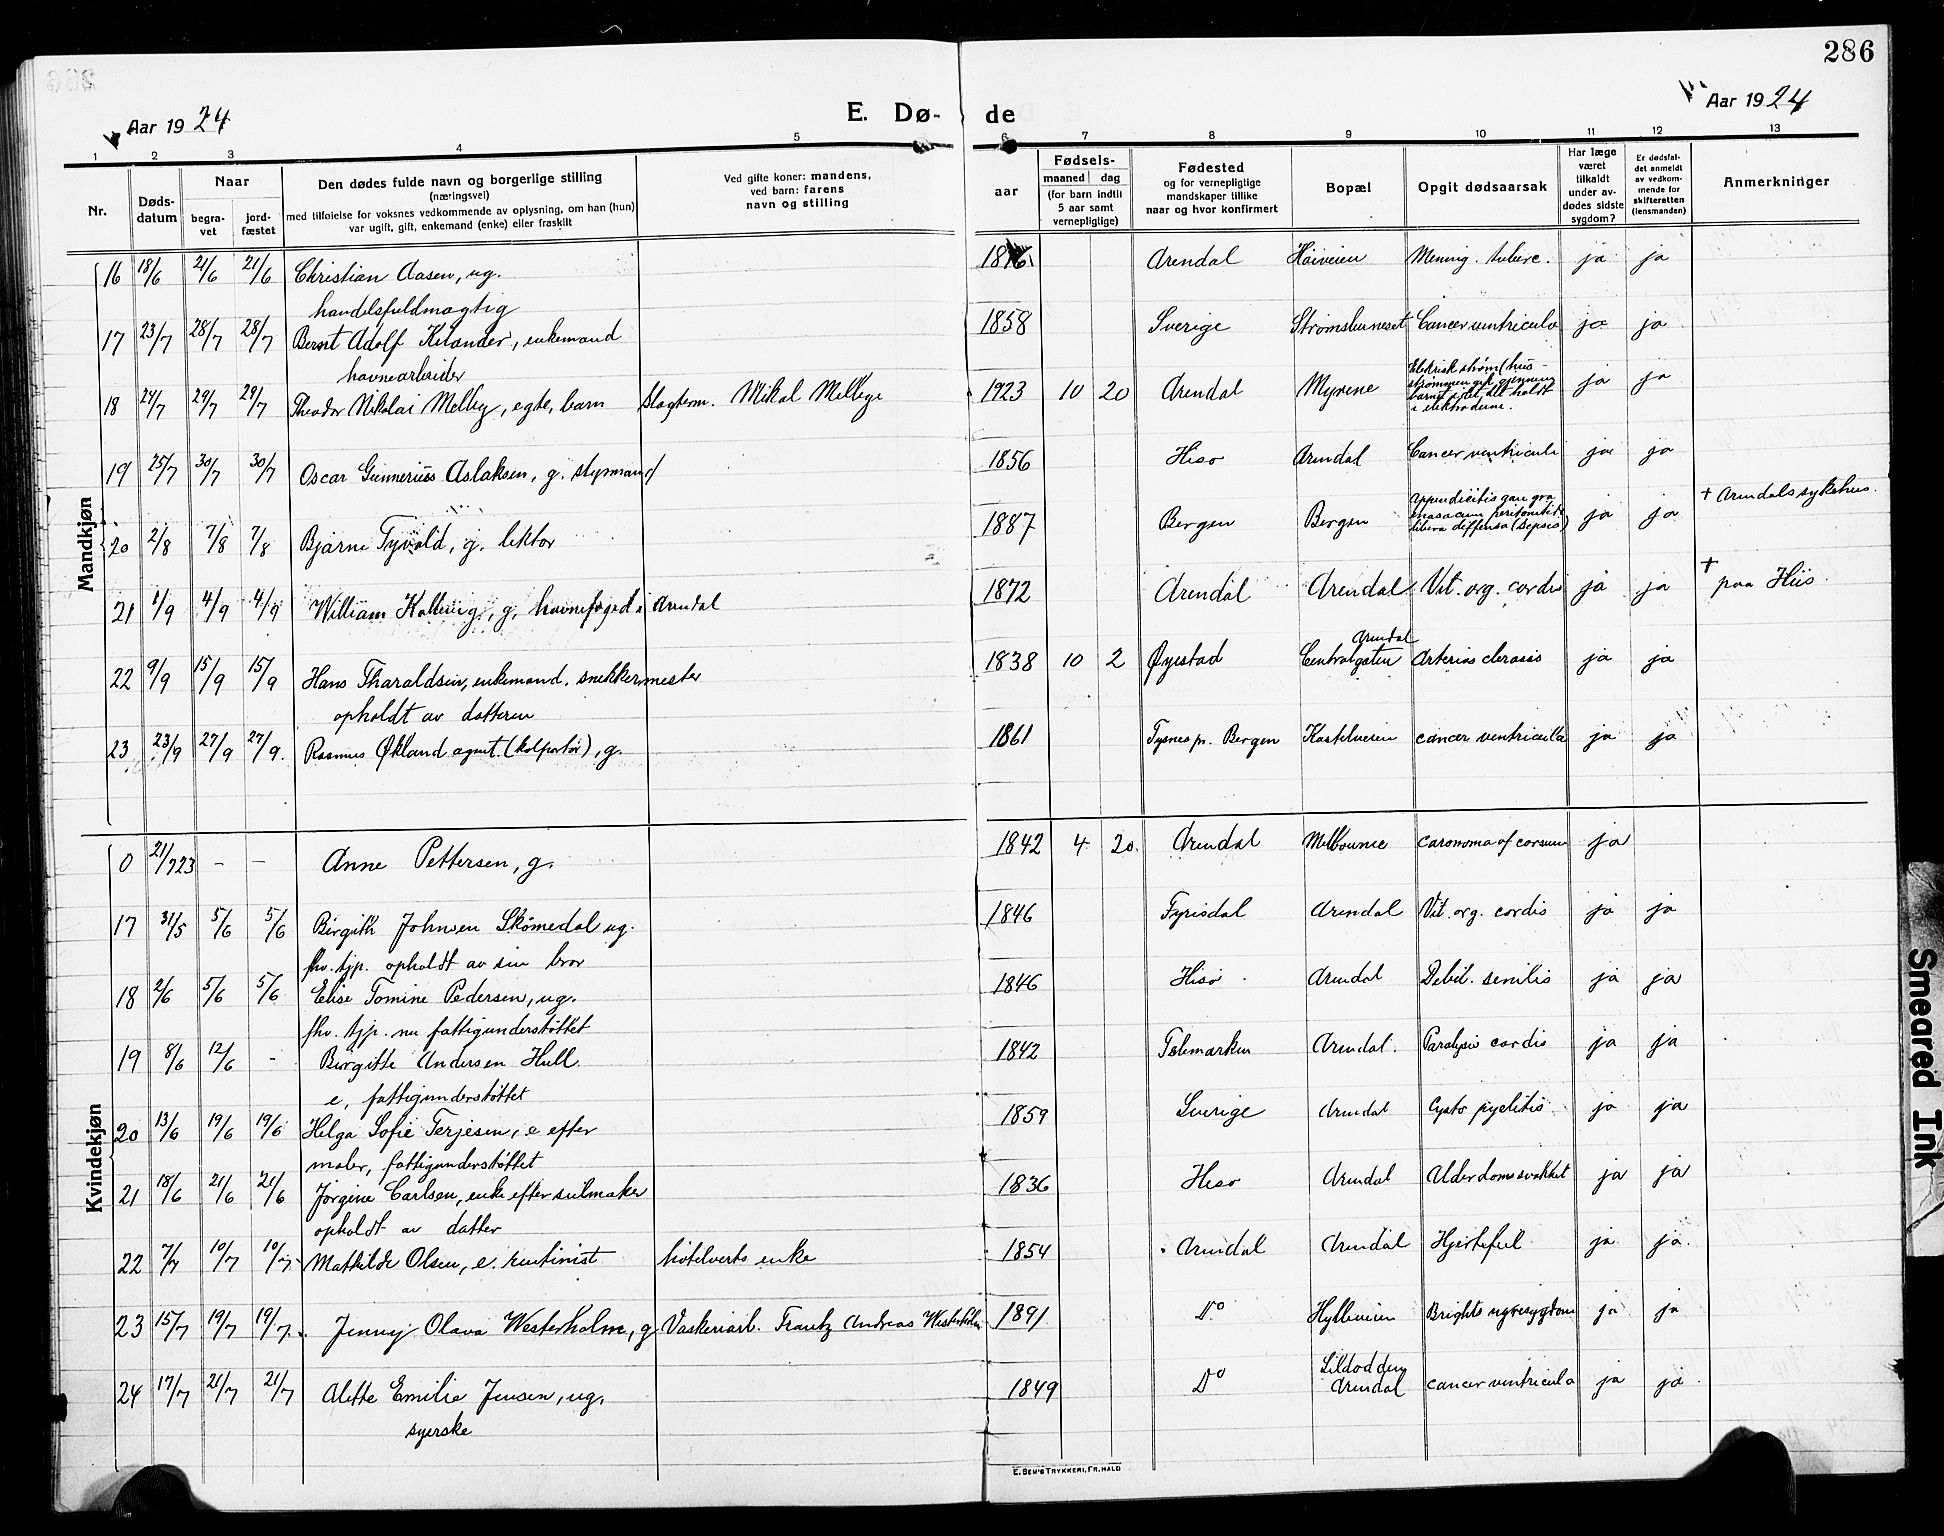 286
Aar 1924
E. Dø- de
Aar 1924
1 2 3 4 5 6 7 8 9 10 11 12 13
Nr.
Døds-
datum
Naar
begra-
vet
jord-
fæstet
Den dødes fulde navn og borgerlige stilling
(næringsvei)
med tilføielse for voksnes vedkommende av oplysning, om han (hun)
var ugift, gift, enkemand (enke) eller fraskilt
Ved gifte koner: mandens,
ved barn: farens
navn og stilling
aar
Fødsels-
maaned dag
(for barn indtil
5 aar samt
vernepligtige)
Fødested
og for vernepligtige
mandskaper tillike
naar og hvor konfirmert
Bopæl
Opgit dødsaarsak
Har læge
været
tilkaldt
under av-
dødes sidste
sygdom?
Er dødsfal-
det anmeldt
av vedkom-
mende for
skifteretten
(lensmanden)
Anmerkninger
Mandkjøn
16 18/6 21/6 21/6 Christian Aasen, ug. Arendal Høiveien Mening. tuberc. ja ja
handelsfuldmægtig
17 23/7 28/7 28/7 Bernt Adolf Kilander, enkemand 1858 Sverige Strømsbuneset Cancer ventriculi ja ja
havnearbeider
18 24/7 29/7 29/7 Theodor Nikolai Melby, egte, barn Slagterm. Mikal Melbye 1923 10 20 Arendal Myrene Elektrisk strøm (hus-
strømmen gik gjennem
barnet idet det holdt
i elektroderne. ja ja
19 25/7 30/7 30/7 Oscar Gunnerius Aslaksen, g. styrmand 1856 Hisø Arendal Cancer ventriculi ja ja
20 2/8 7/8 7/8 Bjarne Tyvold, g. lektor 1887 Bergen Bergen appendicitis gangræ
nosa cum peritonitis
libera diffusa (sepsis) ja ja † Arendals sykehus.
21 1/9 4/9 4/9 William Kallevig, g, havnefoged i Arendal 1872 Arendal Arendal Vit. org. cordis ja ja † paa Hiis.
22 9/9 15/9 15/9 Hans Tharaldsen, enkemand. snekkermester 1838 10 2 Øyestad Centralgaten Arendal Arteriosclerosis ja ja
opholdt av datteren
23 23/9 27/9 27/9. Rasmus Økland agent. (kolportør), g. 1861 Tysnes pr. Bergen Kastelveien cancer ventriculi ja ja
Kvindekjøn
0 21/7 23 - - Anne Pettersen, g. 1842 4 20. Arendal Melbourne ja
17 31/5 5/6 5/6 Birgith Johnsen Skømedal ug. 1846 Fyrisdal Arendal Vit. org. cordis ja ja
fhv. tjp. opholdt av sin bror
18 2/6 5/6 5/6 Elise Tomine Pedersen, ug. 1846 Hisø Arendal Debil. senilis ja ja
fhv. tjp. nu fattigunderstøttet
19 8/6 12/6 - Birgitte Andersen Hull 1842 Telemarken Arendal. Paralysis cordis ja ja
e, fattigunderstøttet
20 13/6 19/6 19/6 Helga Sofie Terjesen, e efter 1859 Sverige Arendal Cysto pyelitis ja ja
maler, fattigunderstøttet
21 18/6 21/6 21/6 Jørgine Carlsen, enke efter seilmaker 1836 Hisø Arendal Alderdomssvakhet ja ja
opholdt av datter
22 7/7 10/7 10/7 Mathilde Olsen, e. rentenist hotelverts enke 1854 Arendal Arendal Hjertefeil ja ja.
23 15/7 19/7 19/7. Jenny Olava Westerholm, g Vaskeriarb. Frantz Andreas Westerholm 1891 Do Hylleveien Brights nyresygdom ja ja
24 17/7 21/7 21/7 Alette Emilie Jensen, ug. 1849 Do Lilodden Arendal cancer ventriculi ja ja
syerske
E. SEM'S TRYKKERI, FR.HALD
Smeared Ink